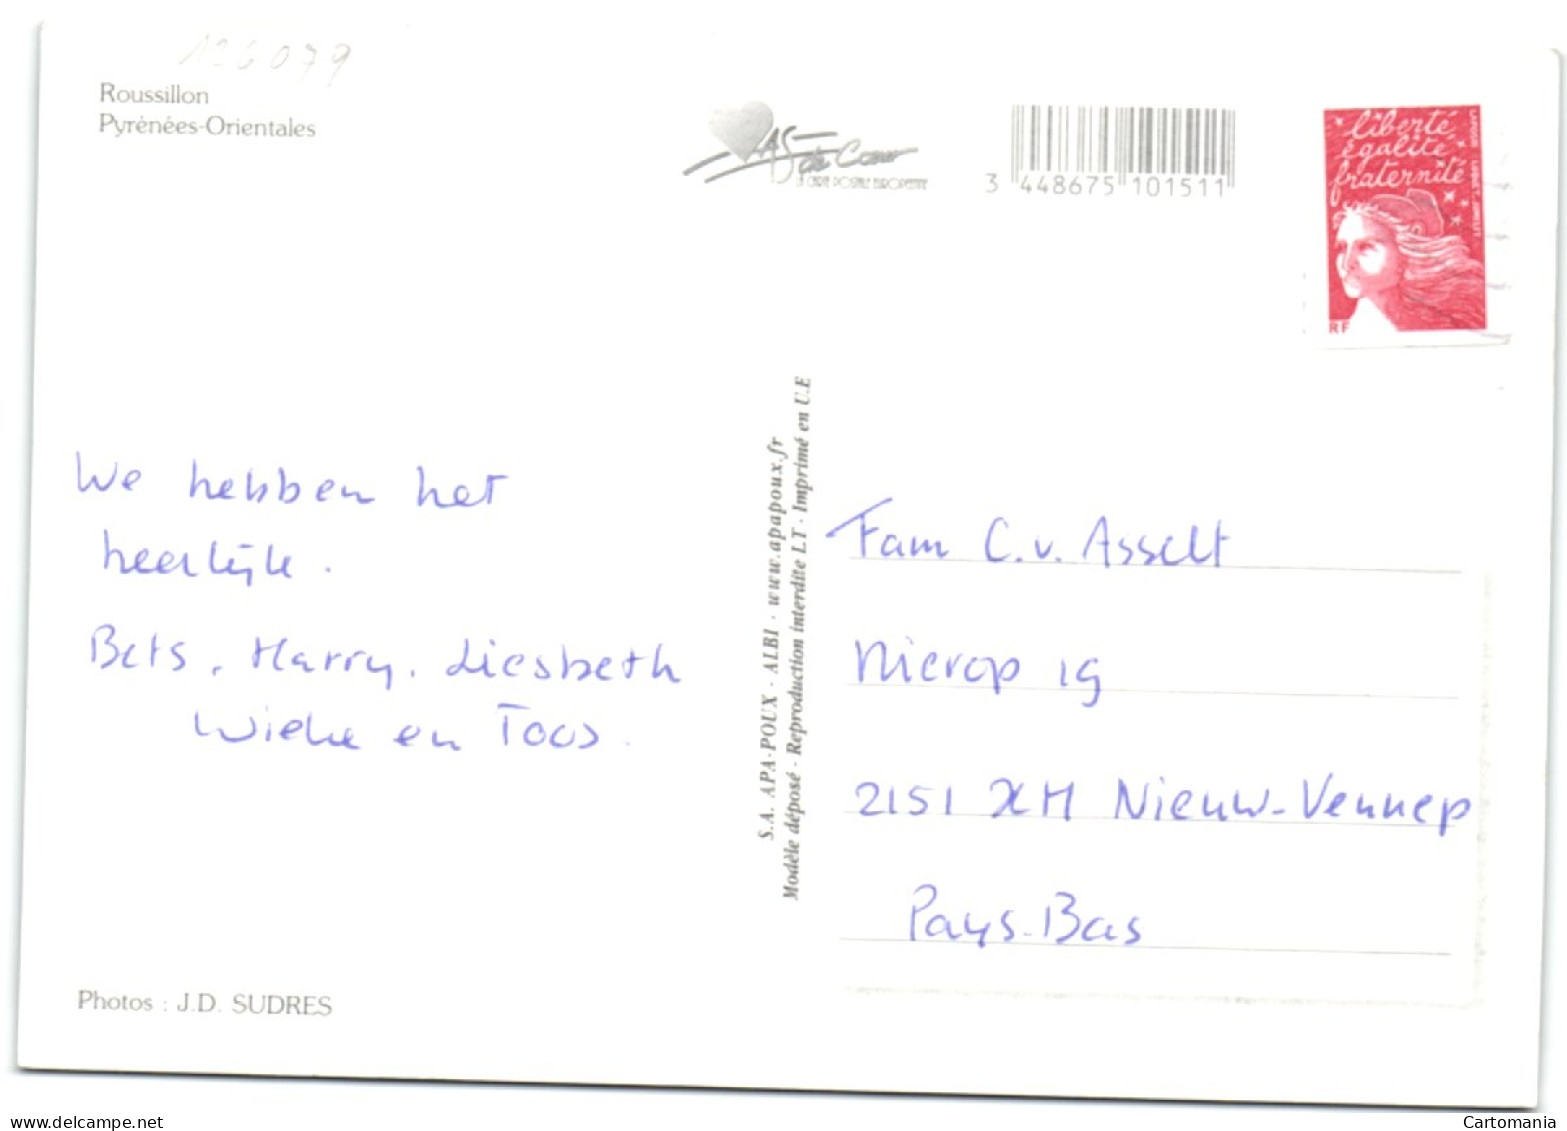 126079
Roussillon
Pyrénées-Orientales
AS de Cœur
LA CARTE POSTALE EUROPEENNE
3 448675 101511
liberté
égalité
fraternité
RF
We hebben het
heerlijk.
Bets, Harry, Liesbeth
Wieke en Toos.
S.A. APA-POUX - ALBI - www.apapoux.fr
Modèle déposé - Reproduction interdite LT - Imprimé en U.E
Fam C.v. Asselt
Nierop 19
2151 XM Nieuw-Vennep
Pays-Bas
Photos : J.D. SUDRES
delcampe.net
Cartomania